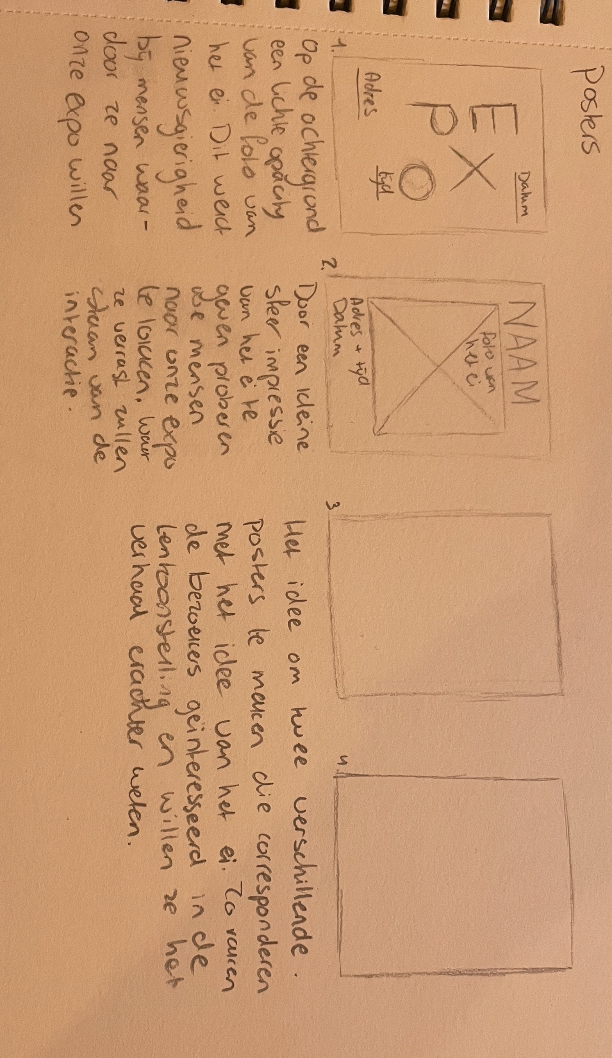 Posters
1.
Datum
E
X
P O
tijd
Adres
Op de achtergrond
een lichte opacity
van de foto van
het ei. Dit wekt
nieuwsgierigheid
bij mensen waar-
door ze naar
onze expo willen
2.
NAAM
foto van
het ei
Adres + tijd
Datum
Door een kleine
sfeer impressie
van het ei te
geven proberen
we mensen
naar onze expo
te lokken. Waar
ze verrast zullen
staan van de
interactie.
3
4.
Het idee om twee verschillende
posters te maken die corresponderen
met het idee van het ei. Zo raken
de bezoekers geïnteresseerd in de
tentoonstelling en willen ze het
verhaal erachter weten.